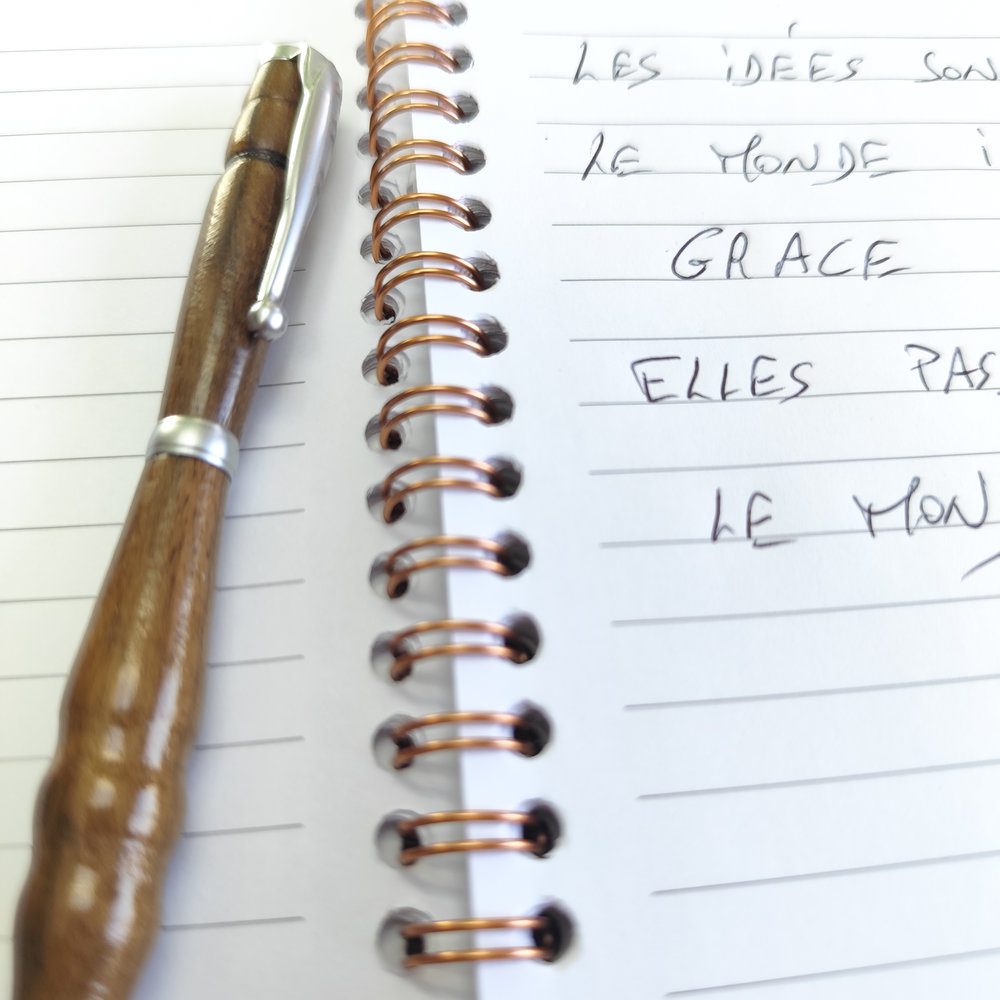 LES iDÉES SON
LE MONDE i
GRACE
ELLES PAS
LE MON